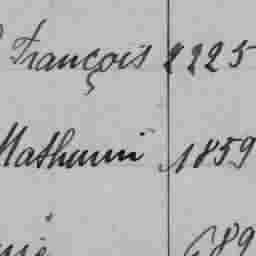 François 2225
Mathurin 1859
689